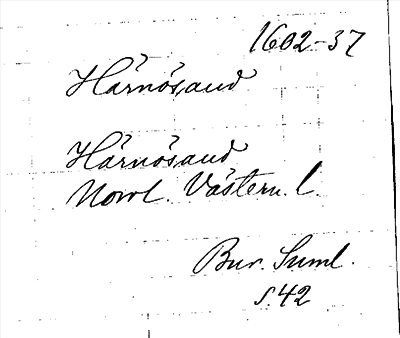 1602-37
Härnösand
Härnösand
Norrl. Västern. l.
Bur. Suml.
s. 42